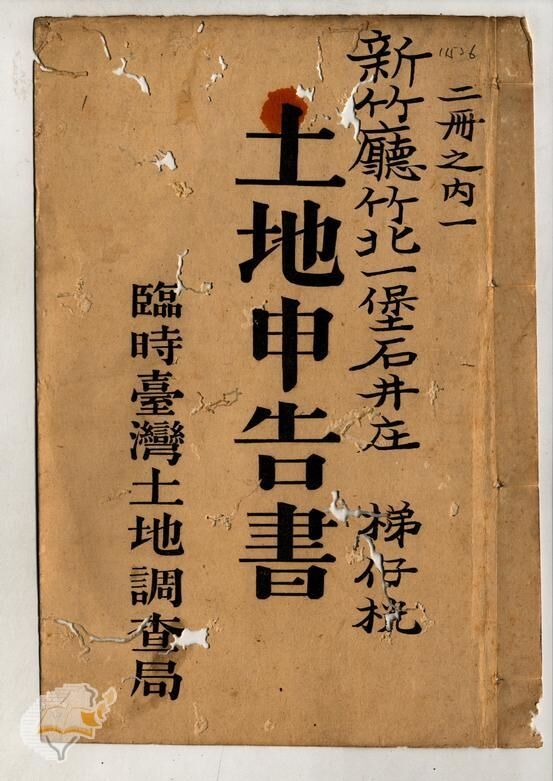 11526
二冊之内一
新竹廳竹北一堡石井庄 梯仔㧡
土地申告書
臨時臺灣土地調查局